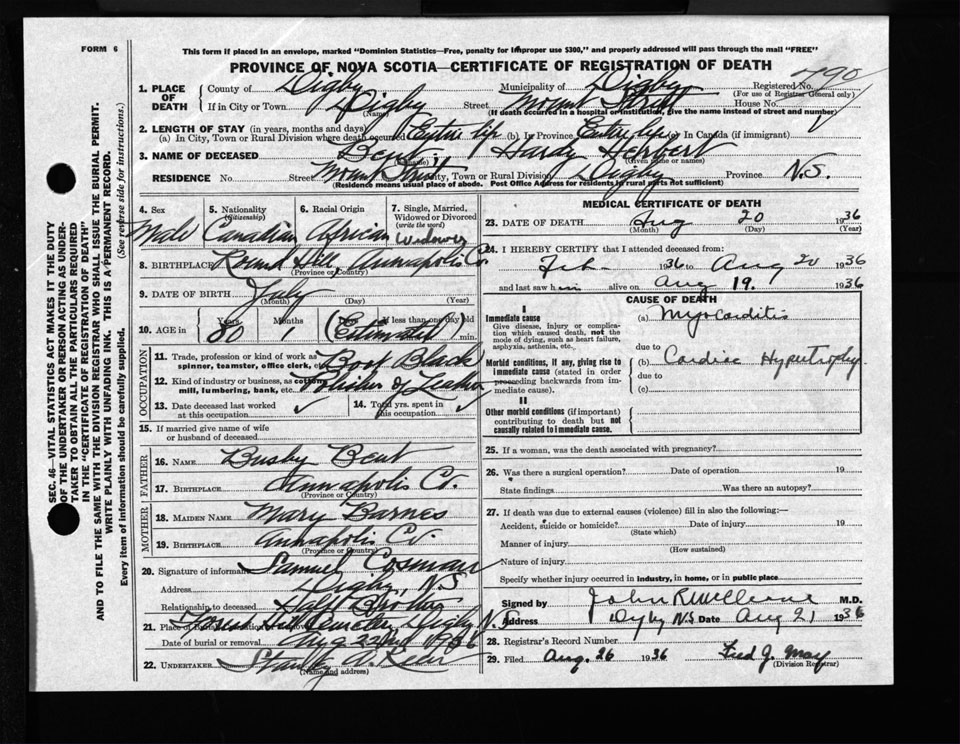 FORM 6
This form if placed in an envelope, marked "Dominion Statistics—Free, penalty for improper use $300," and properly addressed will pass through the mail "FREE"
PROVINCE OF NOVA SCOTIA—CERTIFICATE OF REGISTRATION OF DEATH
1. PLACE OF DEATH
County of Digby Municipality of Digby Registered No. 790
(For use of Registrar General only)
If in City or Town Digby Street Mount Street House No.
(Name) (If death occurred in a hospital or institution, give the name instead of street and number)
2. LENGTH OF STAY (in years, months and days)
(a) In City, Town or Rural Division where death occurred Entire life (b) In Province Entire life (c) In Canada (if immigrant)
3. NAME OF DECEASED Bent, Hardy Herbert
(Given name or names)
RESIDENCE No. Street Mount Street City, Town or Rural Division Digby Province N.S.
(Residence means usual place of abode. Post Office Address for residents in rural parts not sufficient)
4. Sex Male
5. Nationality (Citizenship) Canadian
6. Racial Origin African
7. Single, Married, Widowed or Divorced (write the word) Widower
8. BIRTHPLACE Round Hill Annapolis Co.
(Province or Country)
9. DATE OF BIRTH July
(Month) (Day) (Year)
10. AGE in Years Months Days If less than one day old
80 1 (Estimated) min.
OCCUPATION
11. Trade, profession or kind of work as spinner, teamster, office clerk, etc. Boot Black
12. Kind of industry or business, as cotton mill, lumbering, bank, etc. Polisher of Leather
13. Date deceased last worked at this occupation
14. Total yrs. spent in this occupation
15. If married give name of wife or husband of deceased
FATHER
16. NAME Busby Bent
17. BIRTHPLACE Annapolis Co.
(Province or Country)
MOTHER
18. MAIDEN NAME Mary Barnes
19. BIRTHPLACE Annapolis Co.
(Province or Country)
20. Signature of informant Samuel Cromwan
Address Digby, N.S
Relationship to deceased Half Brother
21. Place of Burial Cemetery Digby N.S.
Date of burial or removal Aug 22nd 1936
22. UNDERTAKER Stanley
(Name and address)
MEDICAL CERTIFICATE OF DEATH
23. DATE OF DEATH Aug 20 1936
(Month) (Day) (Year)
24. I HEREBY CERTIFY that I attended deceased from:
Feb 1936 to Aug 20 1936
and last saw him alive on Aug 19. 1936
CAUSE OF DEATH
I
Immediate cause
Give disease, injury or complication which caused death, not the mode of dying, such as heart failure, asphyxia, asthenia, etc.
(a) Myocarditis
due to
Morbid conditions, if any, giving rise to immediate cause (stated in order proceeding backwards from immediate cause).
(b) Cardiac Hypertrophy
due to
(c)
II
Other morbid conditions (if important) contributing to death but not causally related to immediate cause.
25. If a woman, was the death associated with pregnancy?
26. Was there a surgical operation? Date of operation 19
State findings Was there an autopsy?
27. If death was due to external causes (violence) fill in also the following:—
Accident, suicide or homicide? Date of injury 19
(State which)
Manner of injury
(How sustained)
Nature of injury
Specify whether injury occurred in industry, in home, or in public place
Signed by John R McCleave M.D.
Address Digby N.S Date Aug 21 1936
28. Registrar's Record Number
29. Filed Aug. 26 1936 Fred J. May
(Division Registrar)
SEC. 46—VITAL STATISTICS ACT MAKES IT THE DUTY
OF THE UNDERTAKER OR PERSON ACTING AS UNDER-
TAKER TO OBTAIN ALL THE PARTICULARS REQUIRED
IN THE "CERTIFICATE OF REGISTRATION OF DEATH"
AND TO FILE THE SAME WITH THE DIVISION REGISTRAR WHO SHALL ISSUE THE BURIAL PERMIT.
WRITE PLAINLY WITH UNFADING INK. THIS IS A PERMANENT RECORD.
Every item of information should be carefully supplied. (See reverse side for instructions.)